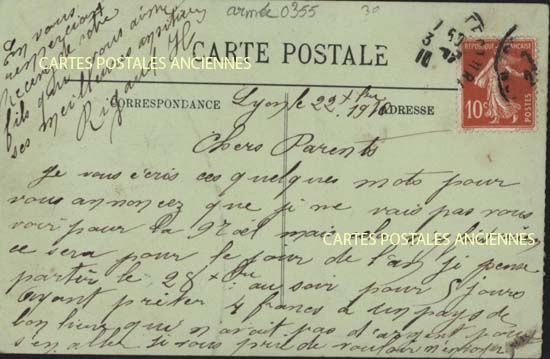 armée 0355
30
En vous
remerciant
recevez de votre
fils qui vous aime
ses meilleures amitiés
Rigaud H
CARTE POSTALE
CARTES POSTALES ANCIENNES
REPUBLIQUE FRANÇAISE
10c
CORRESPONDANCE
ADRESSE
Lyon le 22 Xbre 1910
Chers Parents
Je vous écris ces quelques mots pour
vous annoncez que je ne vais pas vous
voir pour la Noël mais
CARTES POSTALES ANCIENNES
ce sera pour le jour de l'an je pense
partir le 28 Xbre au soir pour 5 jours
Ayant prêter 4 francs à un pays de
bon lieu qui n avait pas d'argent pour
s'en allé je vous prie de vouloir